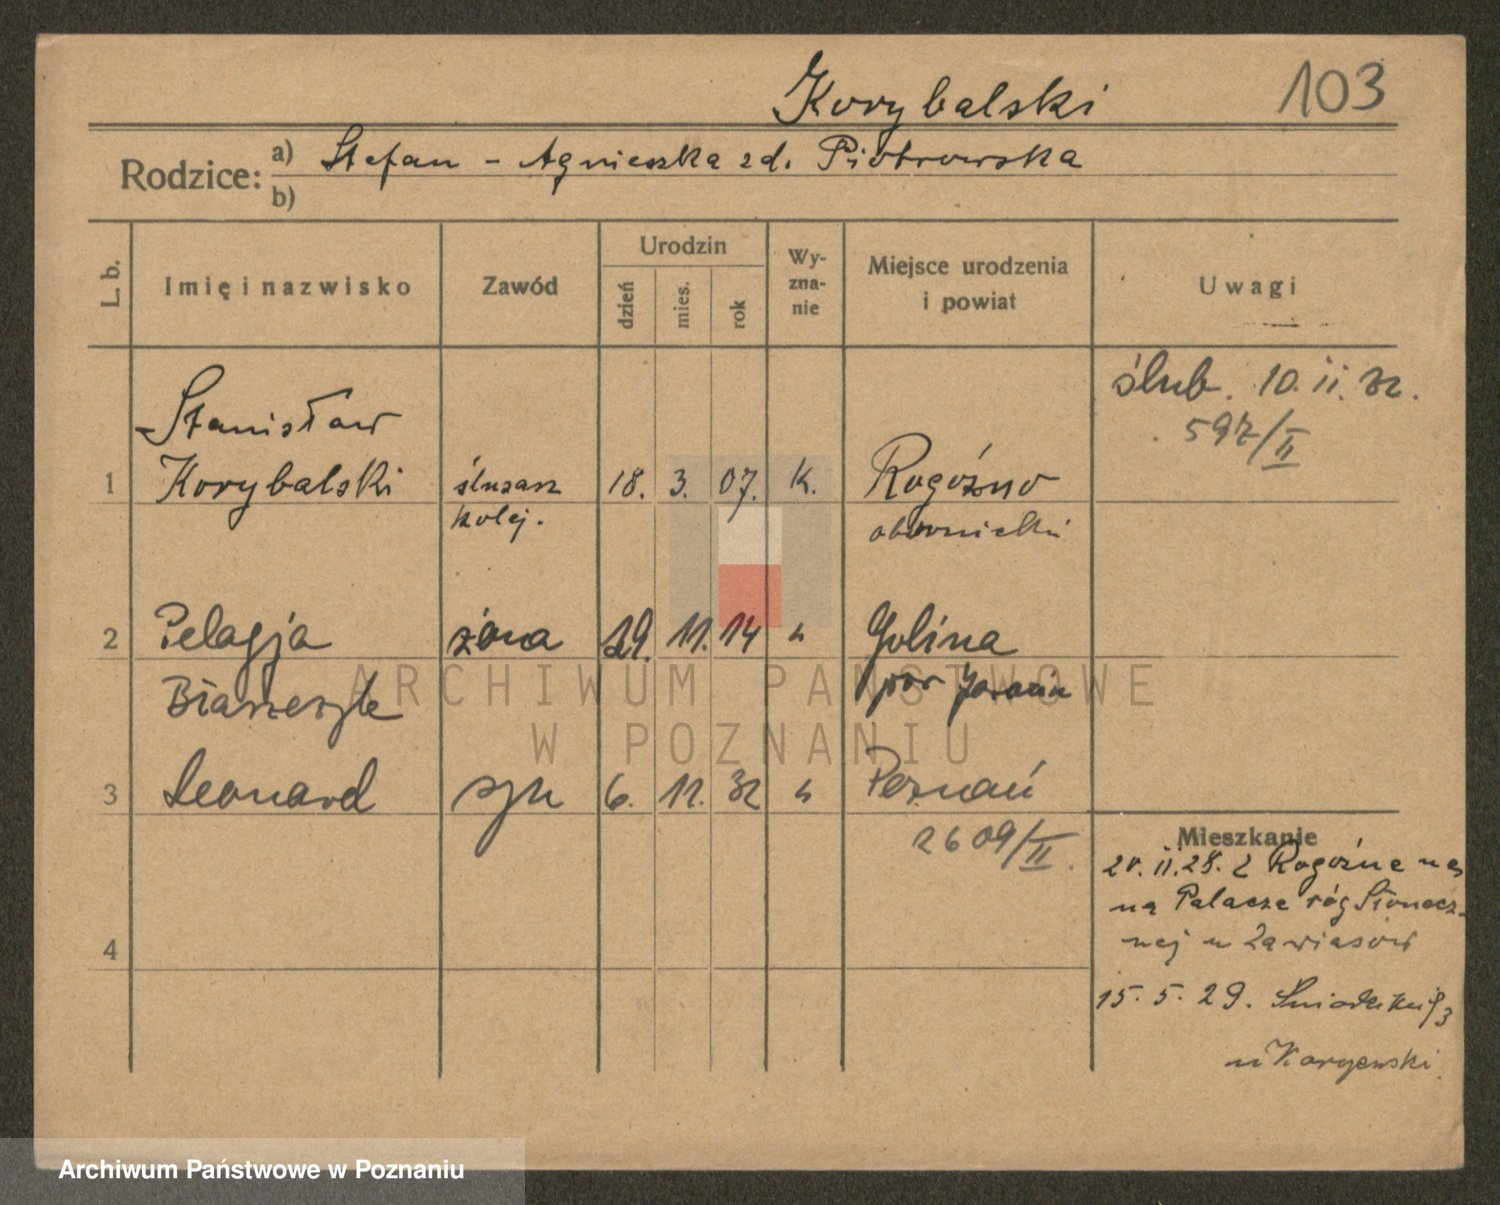 Korybalski 103
Rodzice: a) Stefan - Agnieszka zd. Piotrowska
b)
L. b. Imię i nazwisko Zawód Urodzin dzień mies. rok Wy-zna-nie Miejsce urodzenia i powiat Uwagi
ślub. 10.ii.32.
597/II
Stanisław
1 Korybalski ślusarz 18. 3. 07. K. Rogóźno
kolej. obornicki
2 Pelagja żona 29. 11. 14 " Golina
pow Jarocin
3 Leonard syn 6. 11. 32 " Poznań
2609/II
Mieszkanie
20.ii.28. z Rogóźna
na Palacza róg Słonecz-
nej u
4
15.5.29.
u Karge​wski
Archiwum Państwowe w Poznaniu
W POZNANIU
Archiwum Państwowe w Poznaniu